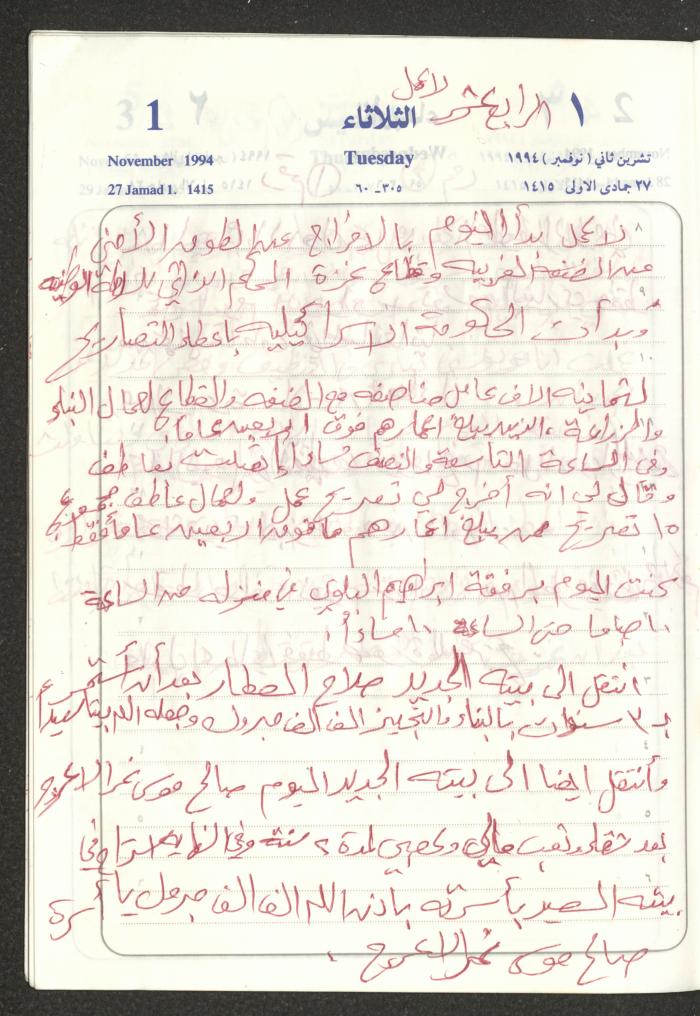 لا عمل
1 الرابع عشر الثلاثاء ١
November 1994 Tuesday تشرين ثاني (نوفمبر) ١٩٩٤
27 Jamad 1. 1415 ٣٠٥-٦٠ ٢٧ جمادى الاولى ١٤١٥
لا عمل ابدأ اليوم بالافراج عن الطوق الأمني
عن الضفة الغربية وقطاع غزة الحكم الذاتي للسلطة الوطنية
وبدأت الحكومة الاسرائيلية باعطاء التصاريح
لثمانية الاف عامل مناصفه مع الضفه والقطاع لعمال البناء
والزراعة، الذين يبلغ اعمارهم فوق الاربعين عاماً
وفي الساعة التاسعة والنصف مساءاً اتصلت بعاطف
وقال لي انه أخرج لي تصريح عمل ولعمال عاطف
١٥ تصريح من يبلغ اعمارهم ما فوق الاربعين عاماً فقط
كنت اليوم برفقة ابراهيم البلوي في منزله من الساعة
١٠ صباحا حتى الساعة ١٠ مساءاً.
انتقل الى بيته الجديد صلاح العطار بعد أن أستمر
٣ سنوات بالبناء والتجهيز الف الف مبروك وجعله الله بيتا سعيداً
وأنتقل ايضا الى بيته الجديد اليوم صالح موسى نمر الاعرج
بعد شقاء وتعب مالي لمدة ٢ سنة وفي النهايه استراح في
بيته السعيد بأسرته باذن الله الف الف مبروك يا أسرة
صالح موسى نمر الاعرج.